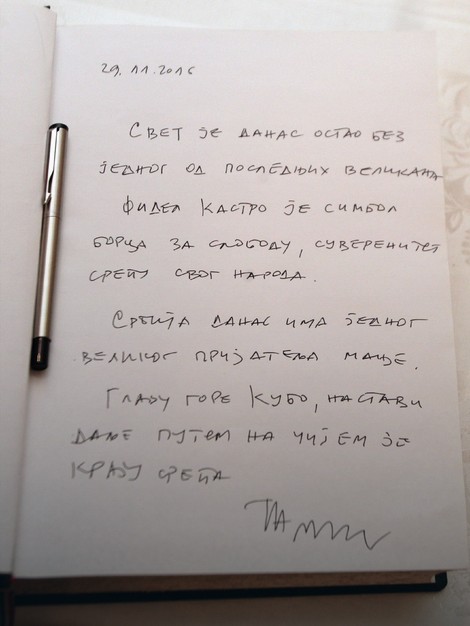 29.11.2016
Свет је данас остао без
једног од последњих великана
Фидел Кастро је симбол
борца за слободу, суверенитет
срећу свог народа.
Србија данас има једног
великог пријатеља мање.
Главу горе Кубо, настави
даље путем на чијем је
крају срећа